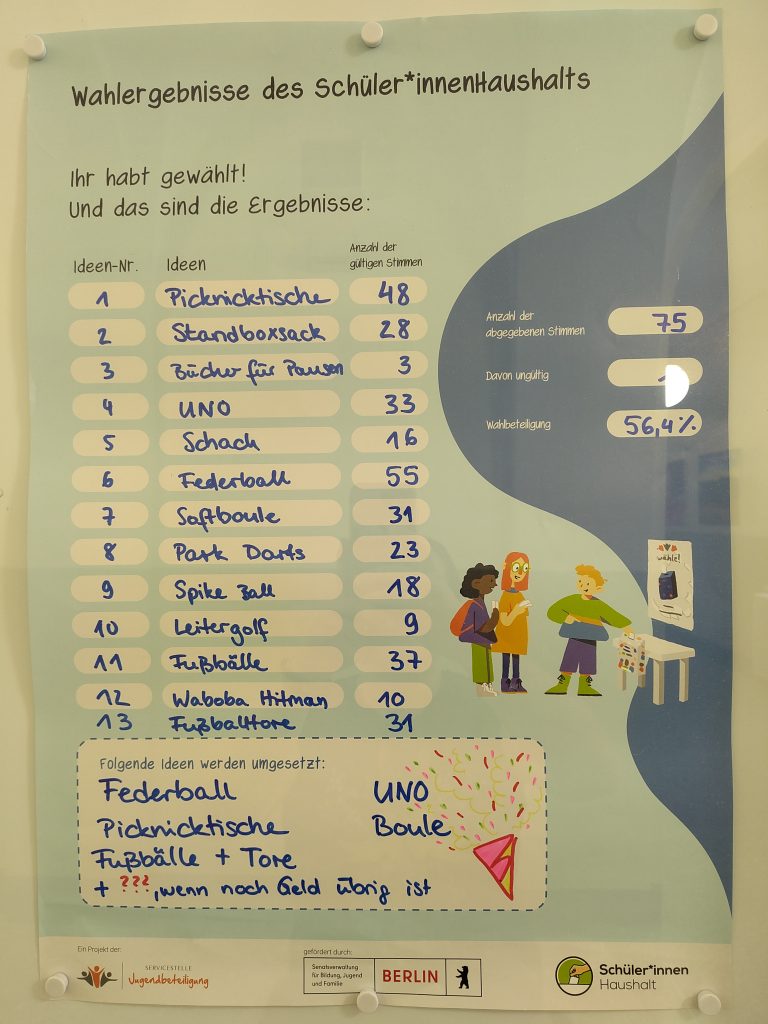 Wahlergebnisse des Schüler*innenHaushalts
Ihr habt gewählt!
Und das sind die Ergebnisse:
Ideen-Nr. Ideen Anzahl der gültigen Stimmen
1 Picknicktische 48
2 Standboxsack 28
3 Bücher für Pausen 3
4 UNO 33
5 Schach 16
6 Federball 55
7 Softboule 31
8 Park Darts 23
9 Spike Ball 18
10 Leitergolf 9
11 Fußbälle 37
12 Waboba Hitman 10
13 Fußballtore 31
Anzahl der
abgegebenen Stimmen 75
Davon ungültig
Wahlbeteiligung 56,4%
wähle!
Folgende Ideen werden umgesetzt:
Federball UNO
Picknicktische Boule
Fußbälle + Tore
+ ???, wenn noch Geld übrig ist
Ein Projekt der:
SERVICESTELLE
Jugendbeteiligung
gefördert durch:
Senatsverwaltung
für Bildung, Jugend
und Familie
BERLIN
Schüler*innen
Haushalt